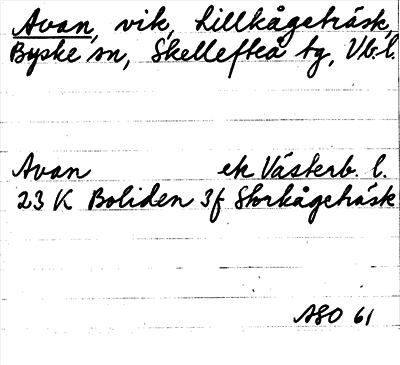 Avan, vik, Lillkågeträsk,
Byske sn, Skellefteå tg, Vb.l.
Avan ek Västerb. l.
23 K Boliden 3f Storkågeträsk
ASO 61